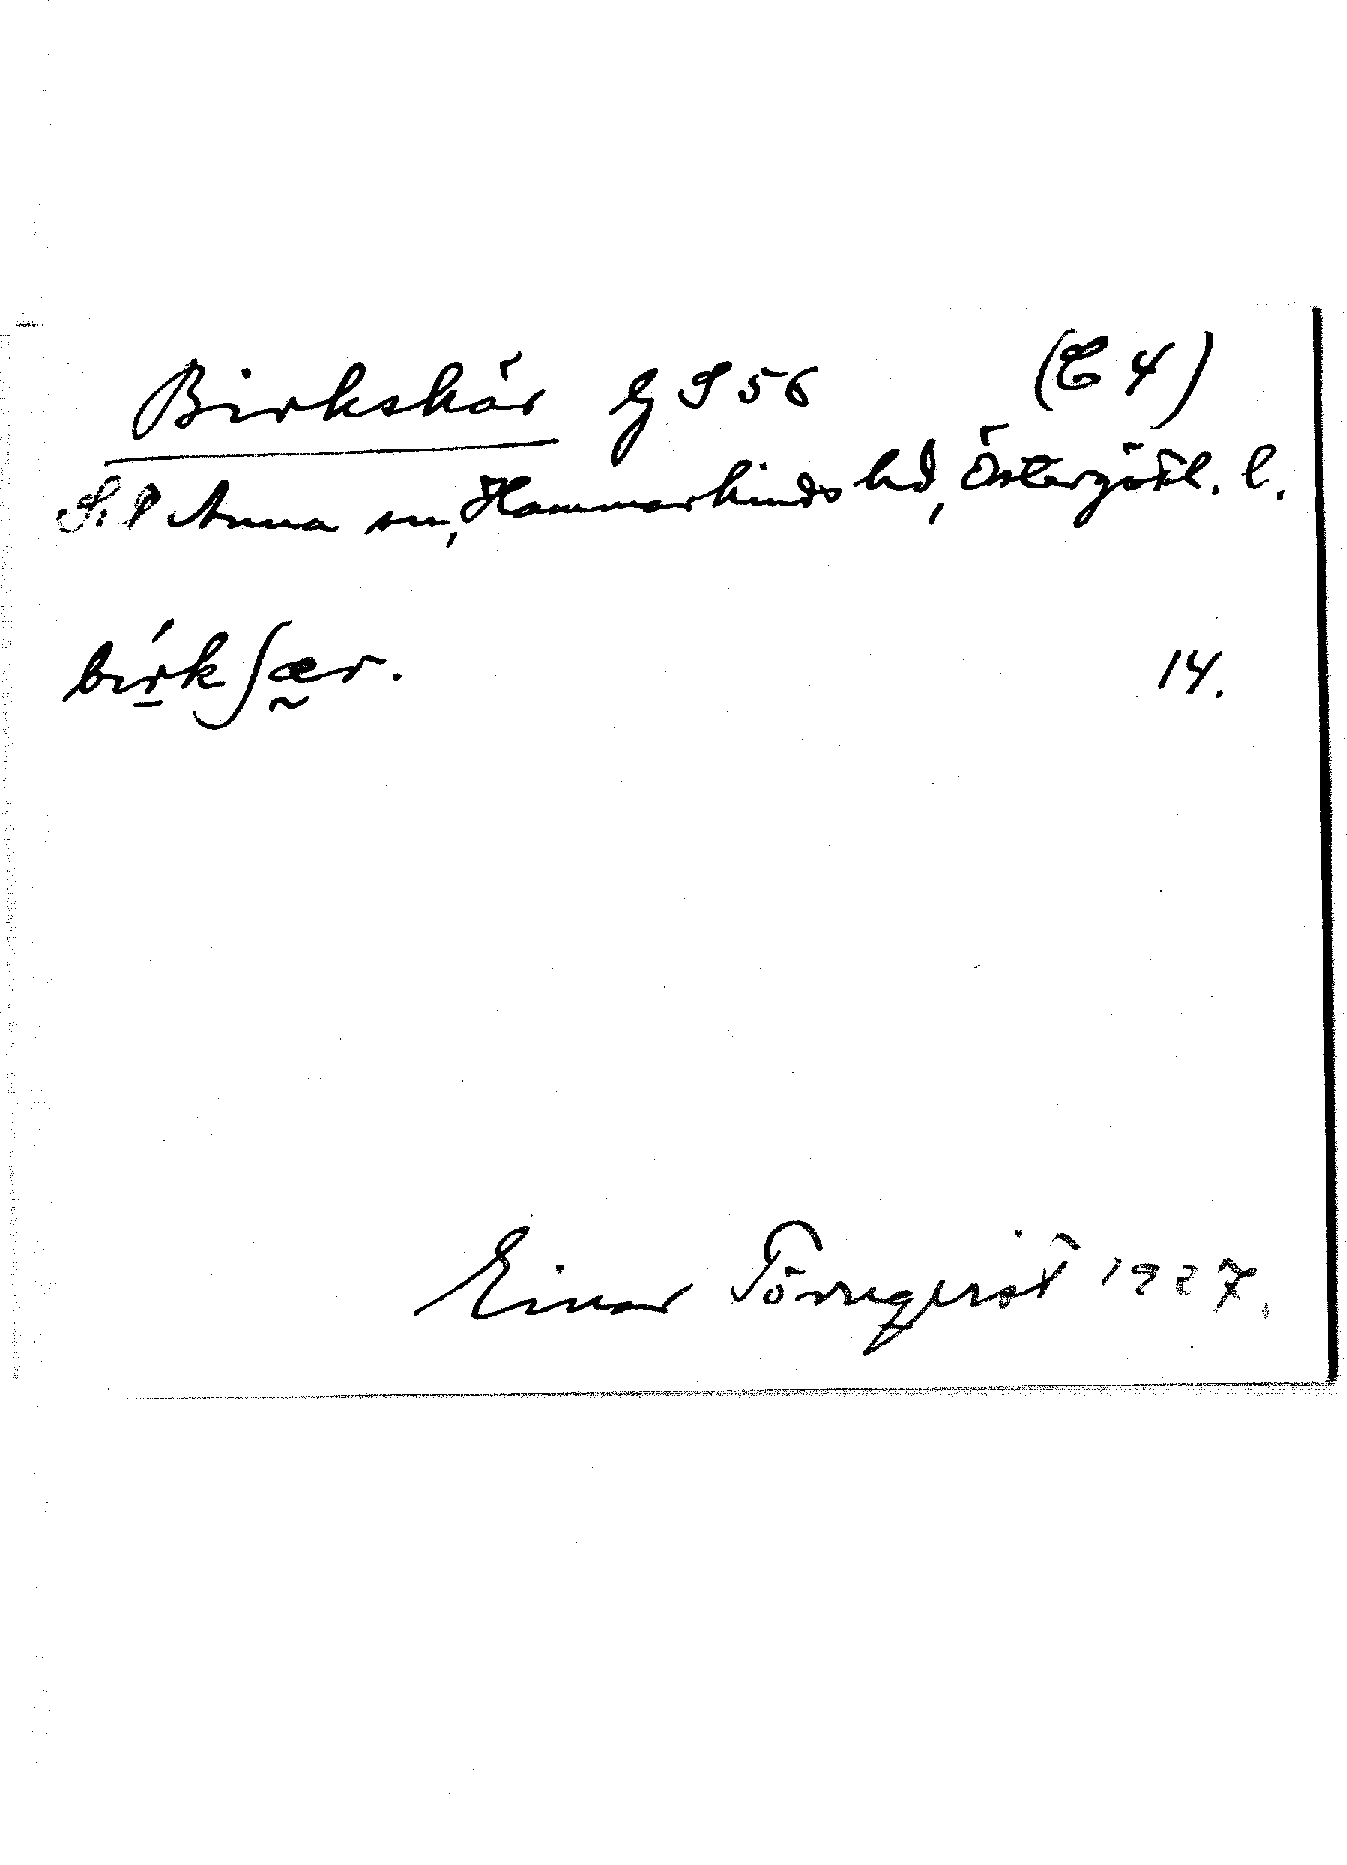 Birkskär G S 56 (C 4)
S:t Anna sn, Hammarkinds hd, Östergötl. l.
bírkʃær. 14.
Einar Törnqvist 1927.